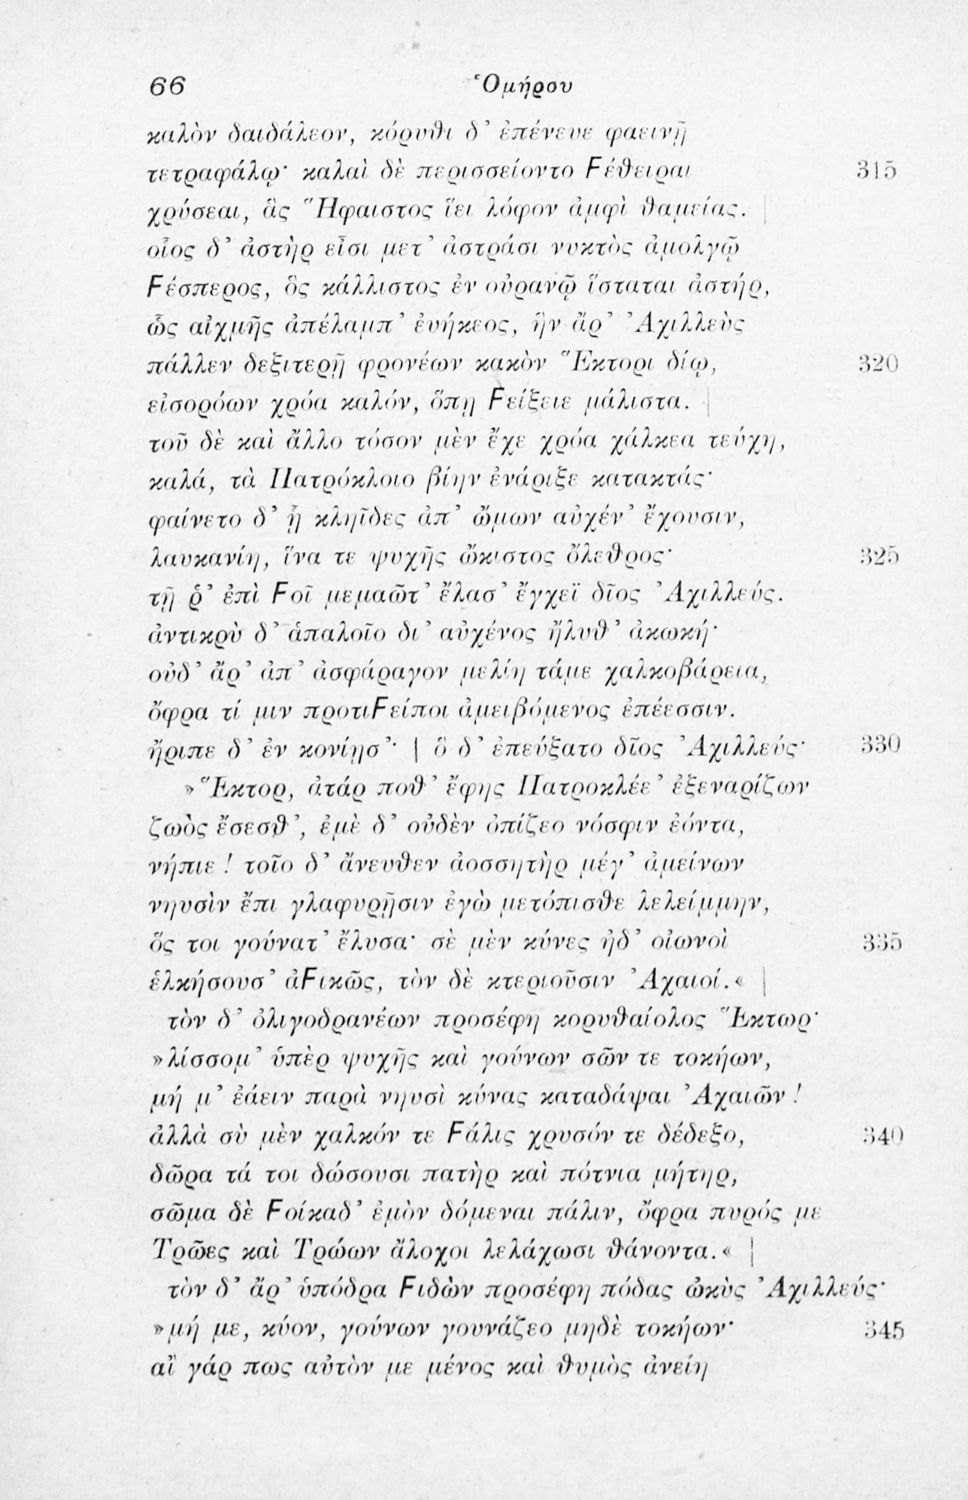 66 Ὁμήρου
καλὸν δαιδάλεον, κόρυθι δ’ ἐπένευε φαεινῇ
τετραφάλῳ· καλαὶ δὲ περισσείοντο Ϝέθειραι 315
χρύσεαι, ἃς Ἥφαιστος ἵει λόφον ἀμφὶ θαμείας. |
οἷος δ’ ἀστὴρ εἶσι μετ’ ἀστράσι νυκτὸς ἀμολγῷ
Ϝέσπερος, ὃς κάλλιστος ἐν οὐρανῷ ἵσταται ἀστήρ,
ὣς αἰχμῆς ἀπέλαμπ’ ἐυήκεος, ἣν ἄρ’ Ἀχιλλεὺς
πάλλεν δεξιτερῇ φρονέων κακὸν Ἕκτορι δίῳ, 320
εἰσορόων χρόα καλόν, ὅπῃ Ϝείξειε μάλιστα. |
τοῦ δὲ καὶ ἄλλο τόσον μὲν ἔχε χρόα χάλκεα τεύχη,
καλά, τὰ Πατρόκλοιο βίην ἐνάριξε κατακτάς·
φαίνετο δ’ ᾗ κληῖδες ἀπ’ ὤμων αὐχέν’ ἔχουσιν,
λαυκανίη, ἵνα τε ψυχῆς ὤκιστος ὄλεθρος· 325
τῇ ῥ’ ἐπὶ Ϝοῖ μεμαῶτ’ ἔλασ’ ἔγχεϊ δῖος Ἀχιλλεύς.
ἀντικρὺ δ’ ἁπαλοῖο δι’ αὐχένος ἤλυθ’ ἀκωκή·
οὐδ’ ἄρ’ ἀπ’ ἀσφάραγον μελίη τάμε χαλκοβάρεια,
ὄφρα τί μιν προτιϜείποι ἀμειβόμενος ἐπέεσσιν.
ἤριπε δ’ ἐν κονίῃσ’· | ὃ δ’ ἐπεύξατο δῖος Ἀχιλλεύς· 330
»Ἕκτορ, ἀτάρ ποθ’ ἔφης Πατροκλέε’ ἐξεναρίζων
ζωὸς ἔσεσθ’, ἐμὲ δ’ οὐδὲν ὀπίζεο νόσφιν ἐόντα,
νήπιε! τοῖο δ’ ἄνευθεν ἀοσσητὴρ μέγ’ ἀμείνων
νηυσὶν ἔπι γλαφυρῇσιν ἐγὼ μετόπισθε λελείμμην,
ὅς τοι γούνατ’ ἔλυσα· σὲ μὲν κύνες ἠδ’ οἰωνοὶ 335
ἑλκήσουσ’ ἀϜικῶς, τὸν δὲ κτεριοῦσιν Ἀχαιοί.« |
τὸν δ’ ὀλιγοδρανέων προσέφη κορυθαίολος Ἕκτωρ·
»λίσσομ’ ὑπὲρ ψυχῆς καὶ γούνων σῶν τε τοκήων,
μή μ’ ἐάειν παρὰ νηυσὶ κύνας καταδάψαι Ἀχαιῶν!
ἀλλὰ σὺ μὲν χαλκόν τε Ϝάλις χρυσόν τε δέδεξο, 340
δῶρα τά τοι δώσουσι πατὴρ καὶ πότνια μήτηρ,
σῶμα δὲ Ϝοίκαδ’ ἐμὸν δόμεναι πάλιν, ὄφρα πυρός με
Τρῶες καὶ Τρώων ἄλοχοι λελάχωσι θάνοντα.« |
τὸν δ’ ἄρ’ ὑπόδρα Ϝιδὼν προσέφη πόδας ὠκὺς Ἀχιλλεύς·
»μή με, κύον, γούνων γουνάζεο μηδὲ τοκήων· 345
αἲ γάρ πως αὐτὸν με μένος καὶ θυμὸς ἀνείη